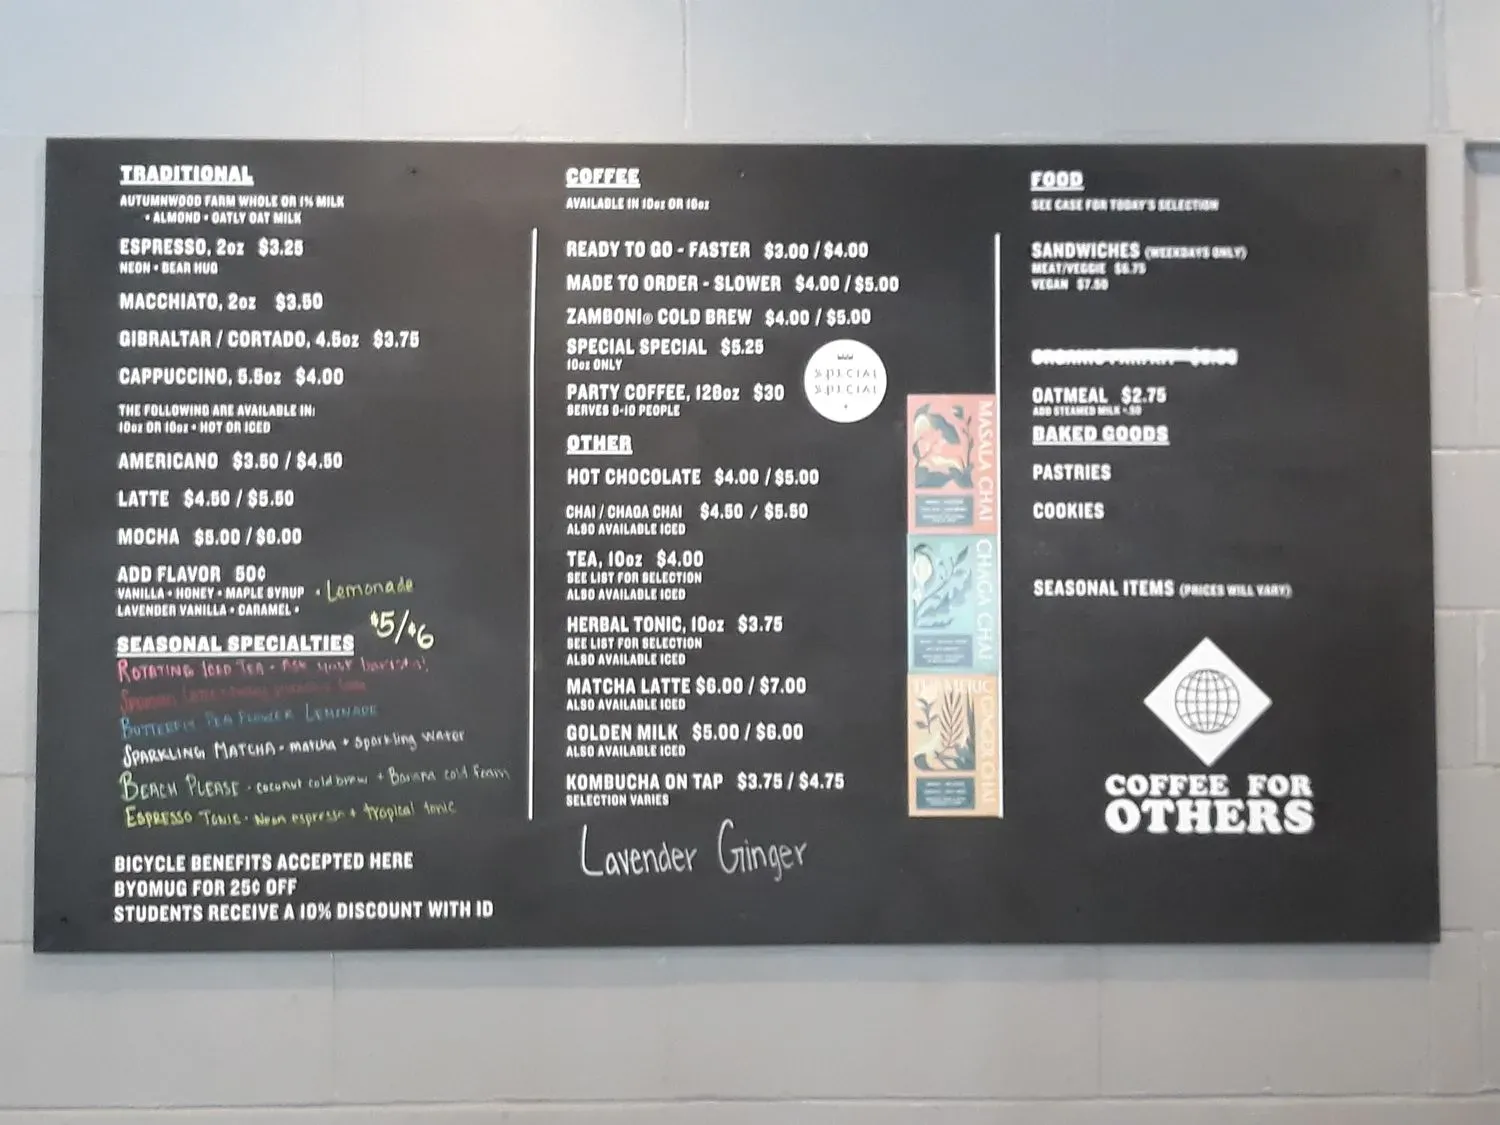 TRADITIONAL
AUTUMNWOOD FARM WHOLE OR 1% MILK
• ALMOND • OATLY OAT MILK
ESPRESSO, 2oz $3.25
NEON • BEAR HUG
MACCHIATO, 2oz $3.50
GIBRALTAR / CORTADO, 4.5oz $3.75
CAPPUCCINO, 5.5oz $4.00
THE FOLLOWING ARE AVAILABLE IN:
10oz OR 16oz • HOT OR ICED
AMERICANO $3.50 / $4.50
LATTE $4.50 / $5.50
MOCHA $5.00 / $6.00
ADD FLAVOR 50¢
VANILLA • HONEY • MAPLE SYRUP • Lemonade
LAVENDER VANILLA • CARAMEL •
$5/$6
SEASONAL SPECIALTIES
ROTATING ICED TEA - ASK your barista!
BUTTERFLY PEA FLOWER LEMONADE
SPARKLING MATCHA - matcha + sparkling water
BEACH PLEASE - coconut cold brew + Banana cold foam
ESPRESSO TONIC - Neon espresso + tropical tonic
BICYCLE BENEFITS ACCEPTED HERE
BYOMUG FOR 25¢ OFF
STUDENTS RECEIVE A 10% DISCOUNT WITH ID
COFFEE
AVAILABLE IN 10oz OR 16oz
READY TO GO - FASTER $3.00 / $4.00
MADE TO ORDER - SLOWER $4.00 / $5.00
ZAMBONI® COLD BREW $4.00 / $5.00
SPECIAL SPECIAL $5.25
10oz ONLY
PARTY COFFEE, 128oz $30
SERVES 8-10 PEOPLE
SPECIAL
SPECIAL
OTHER
HOT CHOCOLATE $4.00 / $5.00
CHAI / CHAGA CHAI $4.50 / $5.50
ALSO AVAILABLE ICED
TEA, 10oz $4.00
SEE LIST FOR SELECTION
ALSO AVAILABLE ICED
HERBAL TONIC, 10oz $3.75
SEE LIST FOR SELECTION
ALSO AVAILABLE ICED
MATCHA LATTE $6.00 / $7.00
ALSO AVAILABLE ICED
GOLDEN MILK $5.00 / $6.00
ALSO AVAILABLE ICED
KOMBUCHA ON TAP $3.75 / $4.75
SELECTION VARIES
Lavender Ginger
MASALA CHAI
CHAGA CHAI
TURMERIC
FOOD
SEE CASE FOR TODAY'S SELECTION
SANDWICHES (WEEKDAYS ONLY)
MEAT/VEGGIE $6.75
VEGAN $7.50
OATMEAL $2.75
ADD STEAMED MILK +.50
BAKED GOODS
PASTRIES
COOKIES
SEASONAL ITEMS (PRICES WILL VARY)
COFFEE FOR
OTHERS